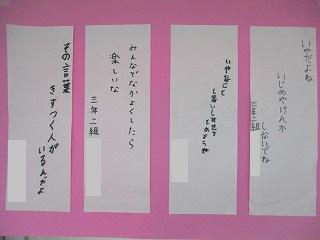 いやだよね
いじめやけんか
しないでね
三年二組
いやなこと
しないしさせない
とめようや
みんなでなかよくしたら
楽しいな
三年二組
その言葉
きずつく人が
いるんだよ